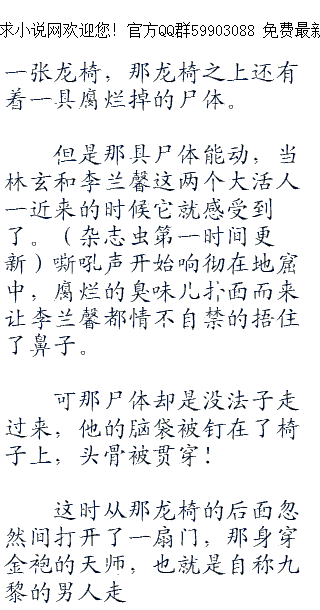 求小说网欢迎您！官方QQ群59903088 免费最新
一张龙椅，那龙椅之上还有
着一具腐烂掉的尸体。
但是那具尸体能动，当
林玄和李兰馨这两个大活人
一近来的时候它就感受到
了。（杂志虫第一时间更
新）嘶吼声开始响彻在地窟
中，腐烂的臭味儿扑面而来
让李兰馨都情不自禁的捂住
了鼻子。
可那尸体却是没法子走
过来，他的脑袋被钉在了椅
子上，头骨被贯穿！
这时从那龙椅的后面忽
然间打开了一扇门，那身穿
金袍的天师，也就是自称九
黎的男人走